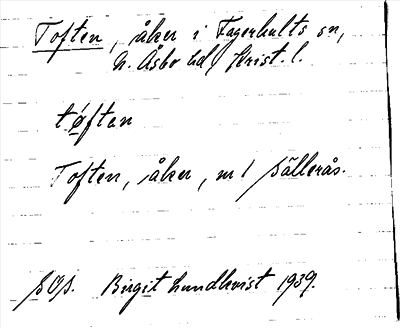 Toften, åker i Fagerhults sn,
N. Åsbo hd, Krist. l.
tøften
Toften, åker, nr 1 Sällerås.
SOS. Birgit Lundkvist 1939.